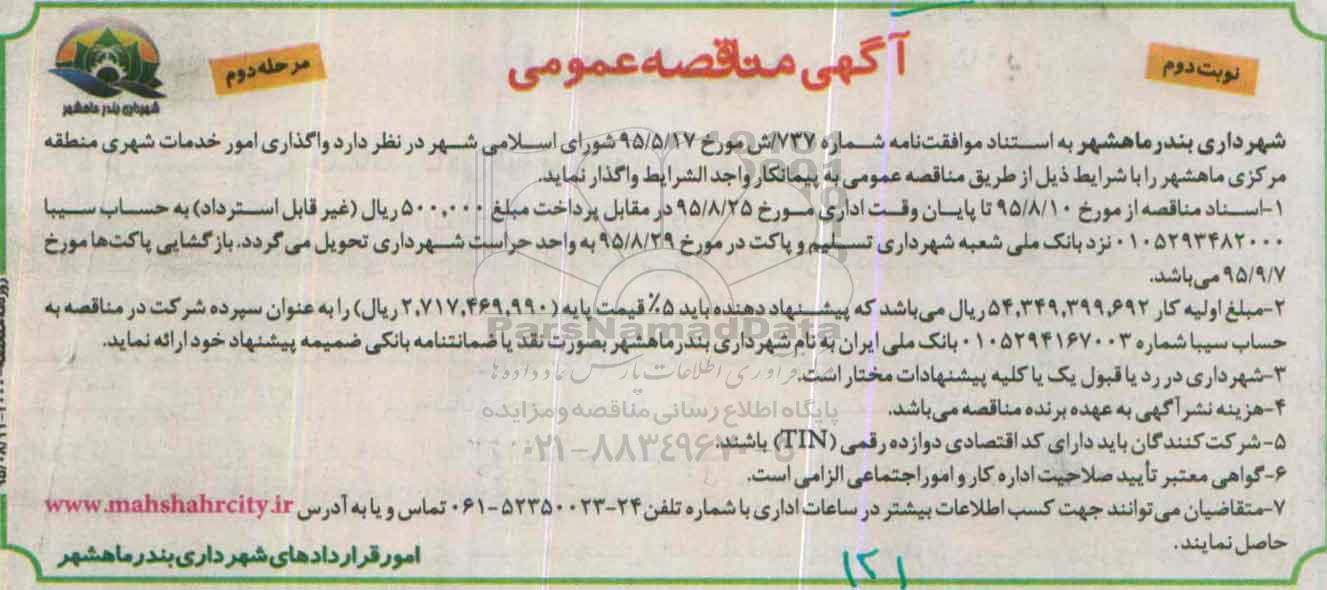 نوبت دوم
آگهی مناقصه عمومی
مرحله دوم
شهرداری بندر ماهشهر
شهرداری بندرماهشهر به استناد موافقت‌نامه شماره ۷۳۷/ش مورخ ۹۵/۵/۱۷ شورای اسلامی شهر در نظر دارد واگذاری امور خدمات شهری منطقه
مرکزی ماهشهر را با شرایط ذیل از طریق مناقصه عمومی به پیمانکار واجد الشرایط واگذار نماید.
۱-اسناد مناقصه از مورخ ۹۵/۸/۱۰ تا پایان وقت اداری مورخ ۹۵/۸/۲۵ در مقابل پرداخت مبلغ ۵۰۰,۰۰۰ ریال (غیر قابل استرداد) به حساب سیبا
۰۱۰۵۲۹۳۴۸۲۰۰۰ نزد بانک ملی شعبه شهرداری تسلیم و پاکت در مورخ ۹۵/۸/۲۹ به واحد حراست شهرداری تحویل می‌گردد. بازگشایی پاکت‌ها مورخ
۹۵/۹/۷ می‌باشد.
۲-مبلغ اولیه کار ۵۴,۳۴۹,۳۹۹,۶۹۲ ریال می‌باشد که پیشنهاد دهنده باید ۵٪ قیمت پایه (۲,۷۱۷,۴۶۹,۹۹۰ ریال) را به عنوان سپرده شرکت در مناقصه به
حساب سیبا شماره ۰۱۰۵۲۹۴۱۶۷۰۰۳ بانک ملی ایران به نام شهرداری بندرماهشهر بصورت نقد یا ضمانتنامه بانکی ضمیمه پیشنهاد خود ارائه نماید.
۳-شهرداری در رد یا قبول یک یا کلیه پیشنهادات مختار است.
۴-هزینه نشر آگهی به عهده برنده مناقصه می‌باشد.
۵-شرکت‌کنندگان باید دارای کد اقتصادی دوازده رقمی (TIN) باشند.
۶-گواهی معتبر تأیید صلاحیت اداره کار و امور اجتماعی الزامی است.
۷-متقاضیان می‌توانند جهت کسب اطلاعات بیشتر در ساعات اداری با شماره تلفن ۲۴-۵۲۳۵۰۰۲۳-۰۶۱ تماس و یا به آدرس www.mahshahrcity.ir
حاصل نمایند.
امور قراردادهای شهرداری بندرماهشهر
ParsNamadData
فرآوری اطلاعات پارس نماد داده‌ها
پایگاه اطلاع رسانی مناقصه و مزایده